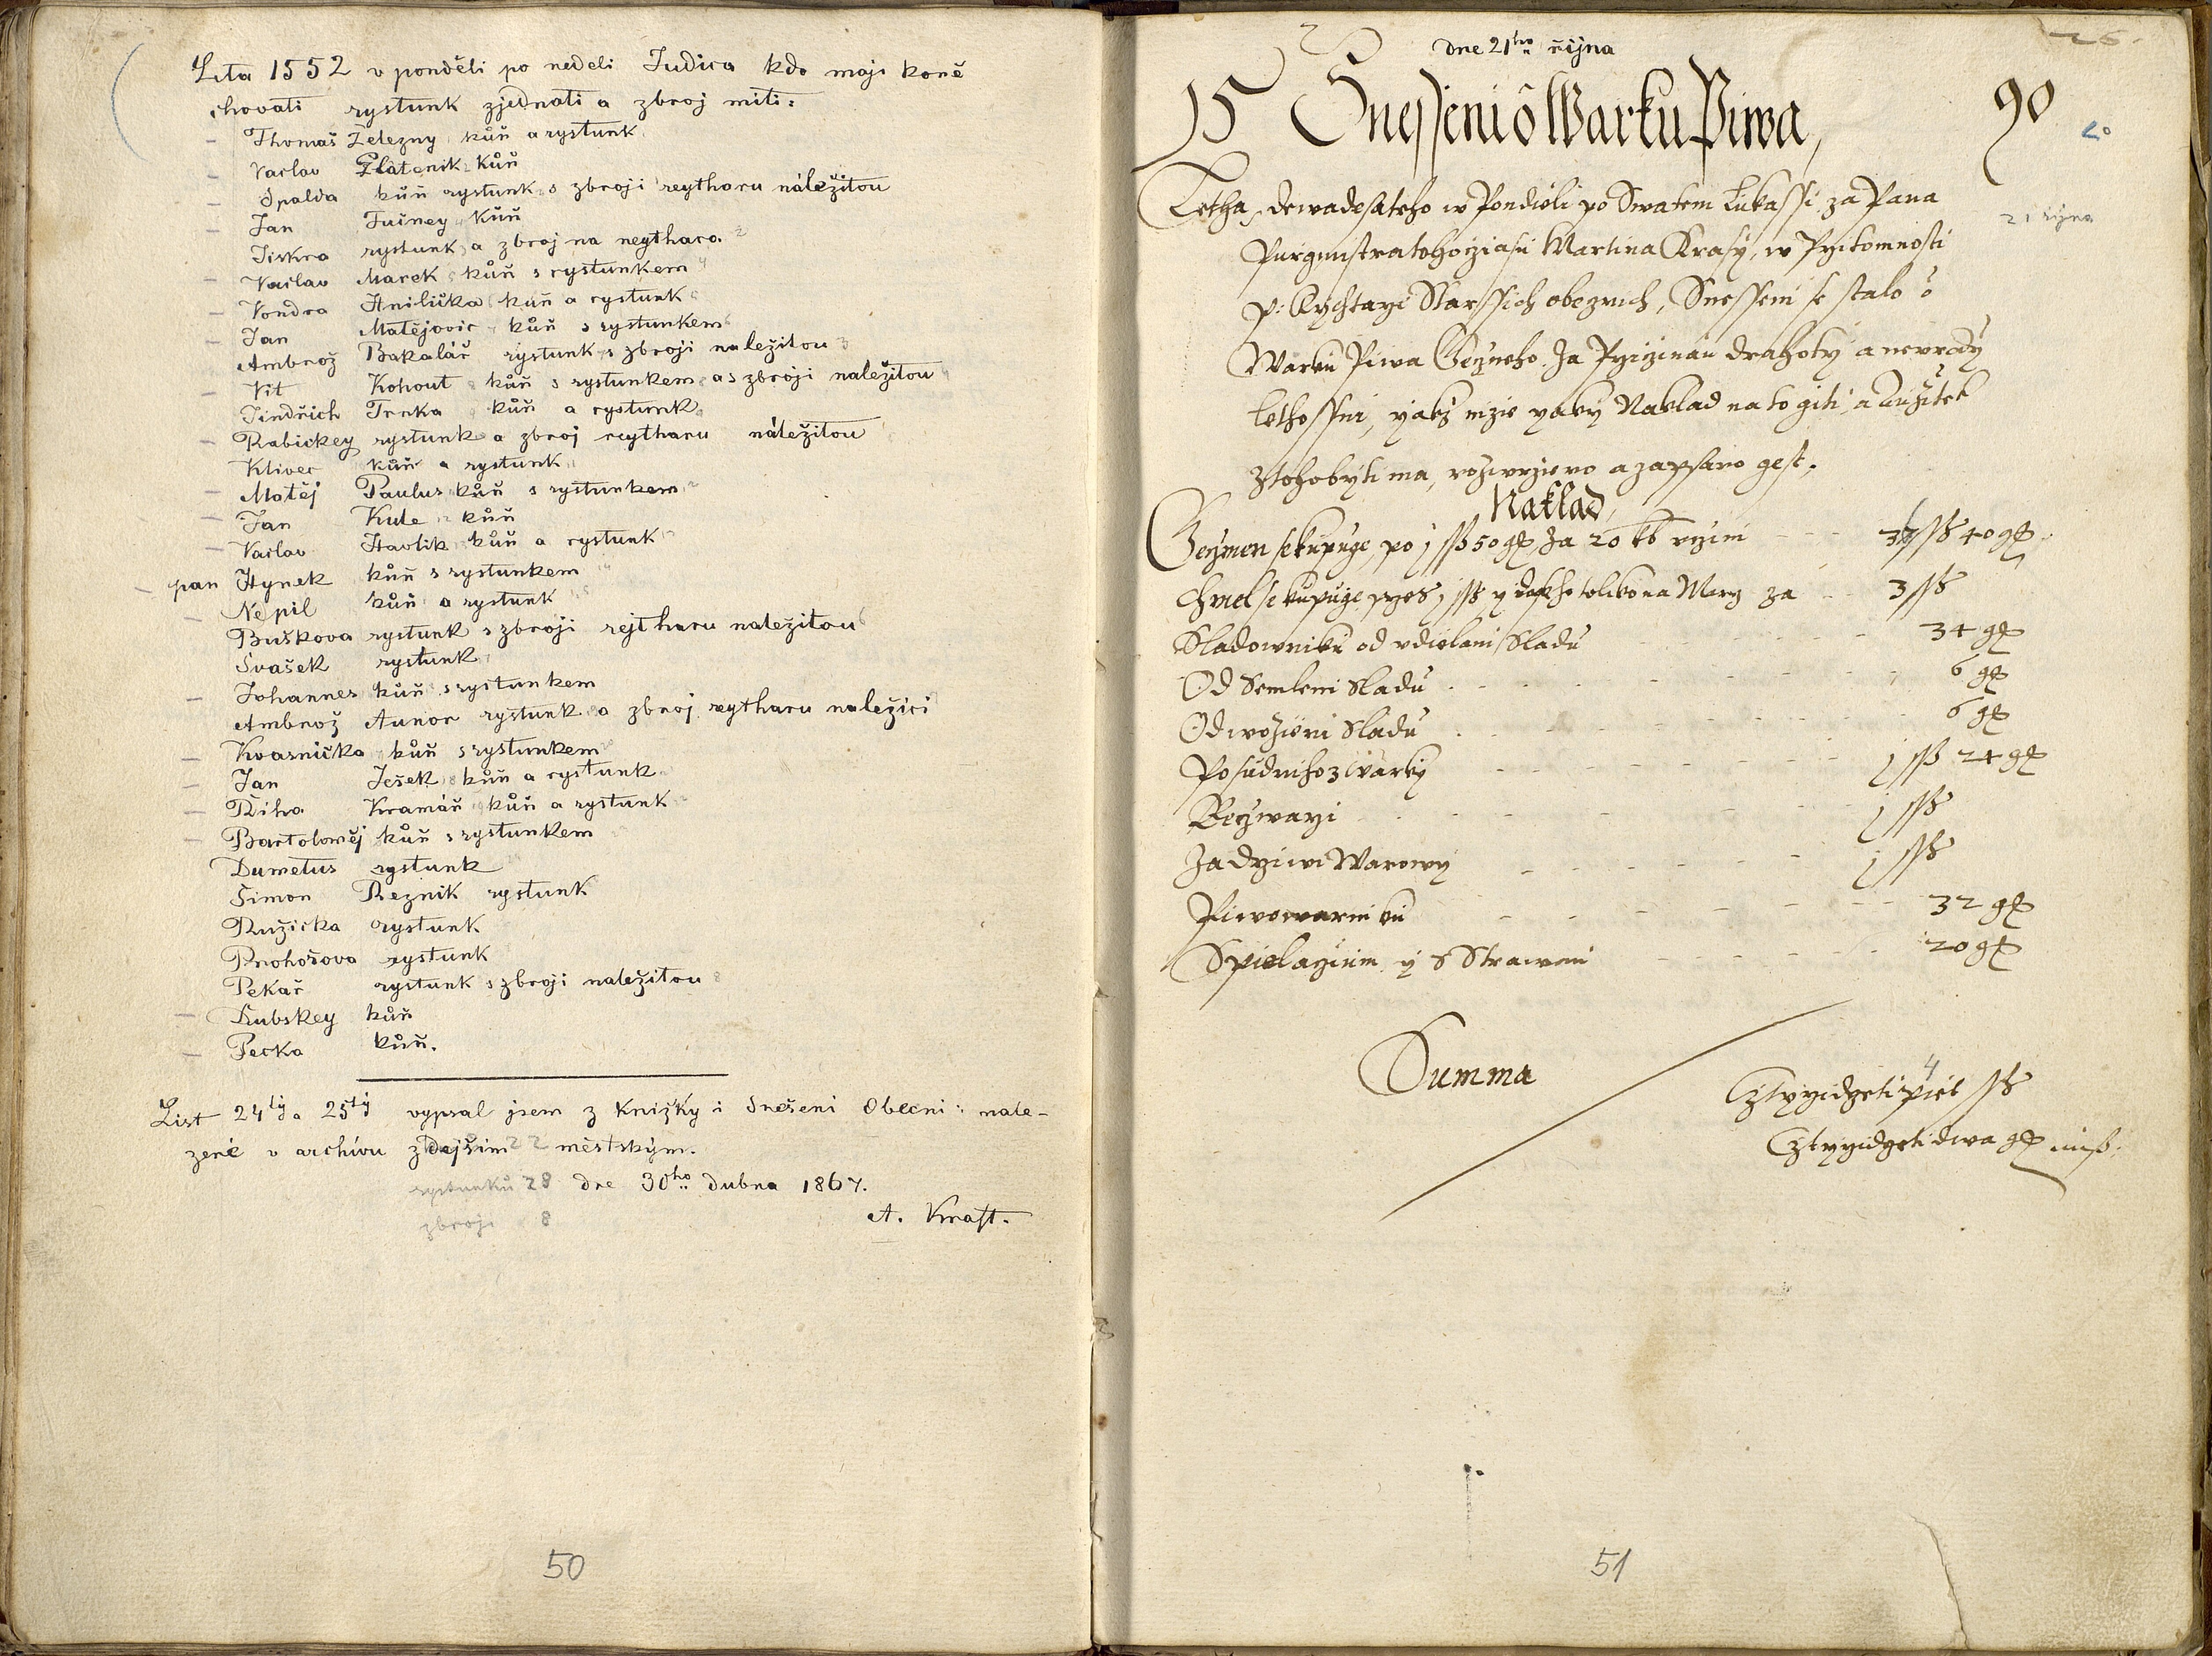 Lita 1552 v ponděli po neděli Judica kdo maji koně
chovati rystunk zjednati a zbroj miti:
Thomaš Železny kůň a rystunk
Vaclav Zlatenik kůň
Spalda kůň rystunk s zbroji reytharu náležitou
Jan Fučney kůň
Jiskra rystunk a zbroj na reythara
Vaclav Marek kůň s rystunkem
Vondra Hnilička kůň a rystunk
Jan Matějovic kůň s rystunkem
Ambrož Bakalář rystunk s zbroji naležitou
Vit Kohout kůň s rystunkem a s zbroji naležitou
Jindřich Trnka kůň a rystunk
Rabickey rystunk a zbroj reytharu náležitou
Klivec kůň a rystunk
Matěj Paulus kůň s rystunkem
Jan Kule kůň
Vaclav Havlik kůň a rystunk
pan Hynek kůň s rystunkem
Nepil kůň a rystunk
Buškova rystunk s zbroji rejtharu naležitou
Svašek rystunk
Johannes kůň s rystunkem
Ambrož Aunor rystunk a zbroj reytharu naležici
Kvasnička kůň s rystunkem
Jan Ješek kůň a rystunk
Řiha Kramář kůň a rystunk
Bartoloměj kůň s rystunkem
Dumetus rystunk
Šimon Řeznik rystunk
Ružička rystunk
Prohošova rystunk
Pekař rystunk s zbroji naležitou
Lubskey kůň
Pecka kůň.
List 24tý a 25tý vypsal jsem z Knižky i Snešeni Obecni: nale-
zené v archívu zdejším městským.
rystunků 28 dne 30ho dubna 1867.
zbroji 8 A. Kraft.
50
26.
dne 21ho řijna
15 Snesseni o Warku Piwa, 90
20
Letha dewadesateho w Pondieli po Swatem Lukassi za Pana 21 řijna
Purgmistra tohocziasu Martina Krasy, w Przitomnosti
P: Rychtarzi Starssich obecznich, Snesseni se stalo o
Warku Piwa Geczneho. Za Prziczinau drahoty a neurody
Lethossni, yakz nizie yaky Naklad na to giti, a Vzitek
ztoho byti ma, rozwrzieno a zapsano gest.
Naklad,
Geczmen se kupuge, po j ssß 50 gß, Za 20 ... 37 ssß 40 gß
Chmel se kupuge przes j ssß ... tolikona Merz za 3 ssß
Sladowniku od vdielani Sladu 34 gß
Od Semleni Sladu 6 gß
Od wozieni Sladu 6 gß
Posudniho z Warky j ssß 24 gß
Beczwarzi j ssß
Za drziwi Warowy j ssß
Piwowarniku 32 gß
Spielagicim y s Strawau 20 gß
Summa
Cztyrzidczeti piet ssß
4
Cztyrzidczeti dwa gß miß:
51